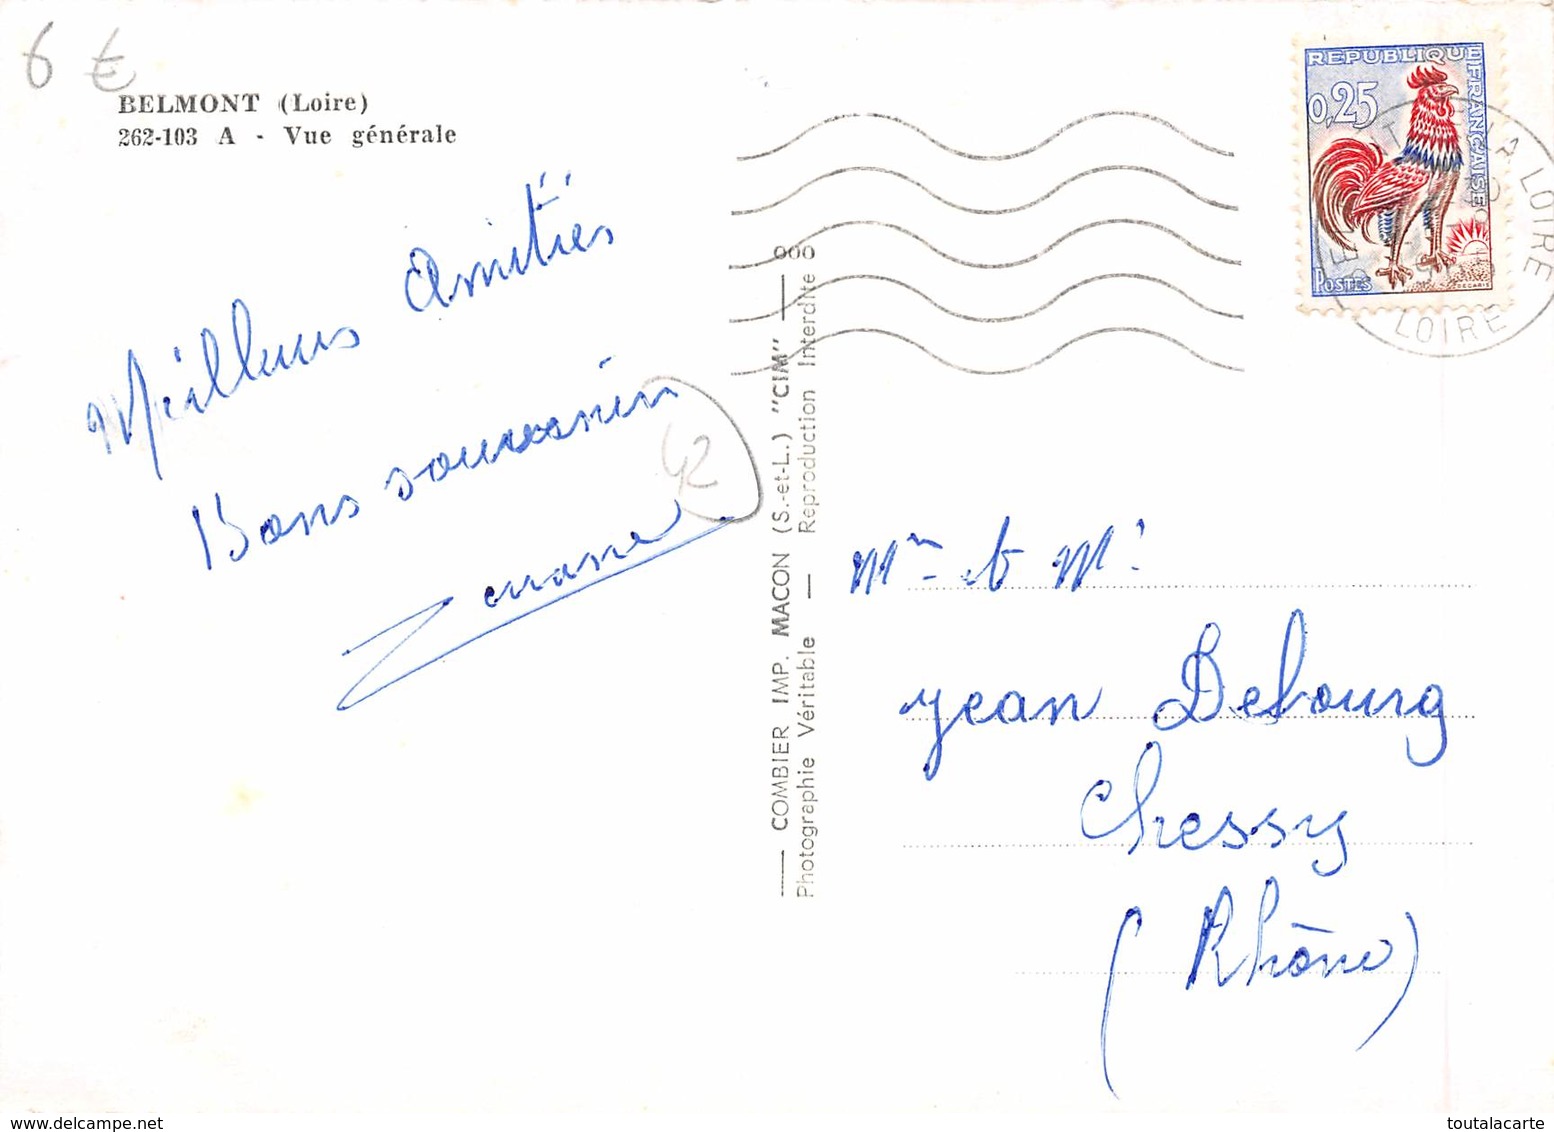 6 €
BELMONT (Loire)
262-103 A - Vue générale
Meilleurs Amitiés
Bons souvenirs
42
COMBIER IMP. MACON (S.-et-L.) "CIM"
Photographie Véritable — Reproduction Interdite
REPUBLIQUE FRANÇAISE
0,25
POSTES
DECARIS
LA LOIRE
LOIRE
Mme et Mr
Jean Debourg
Chessy
(Rhône)
www.delcampe.net
toutalacarte